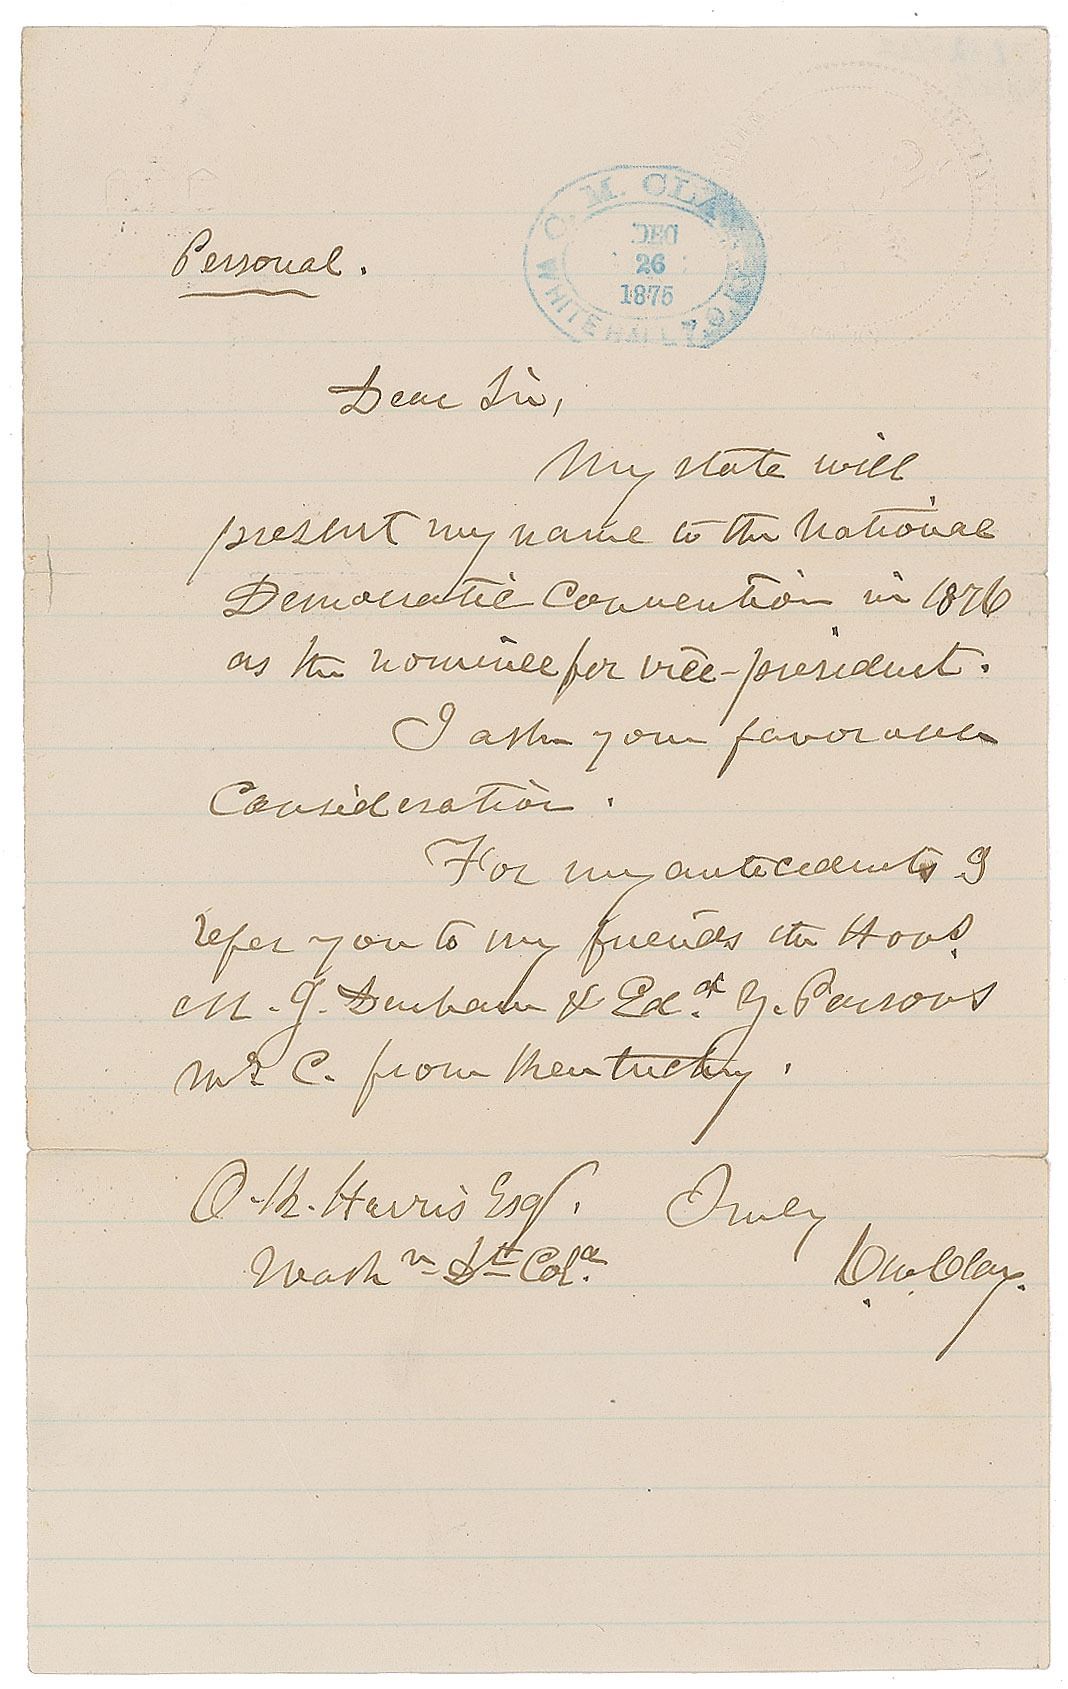 C. M. CLA
DEC
26
1875
WHITEHALL
Personal.
Dear Sir,
My state will
present my name to the National
Democratic Convention in 1876
as the nominee for vice-president.
I ask your favorable
Consideration.
For my antecedents I
refer you to my friends the Hons.
M. J. Durham & Edd. Y. Parsons
M's C. from Kentucky.
O. K. Harris Esq. Truly
Washn Dt Cola. C. M. Clay.